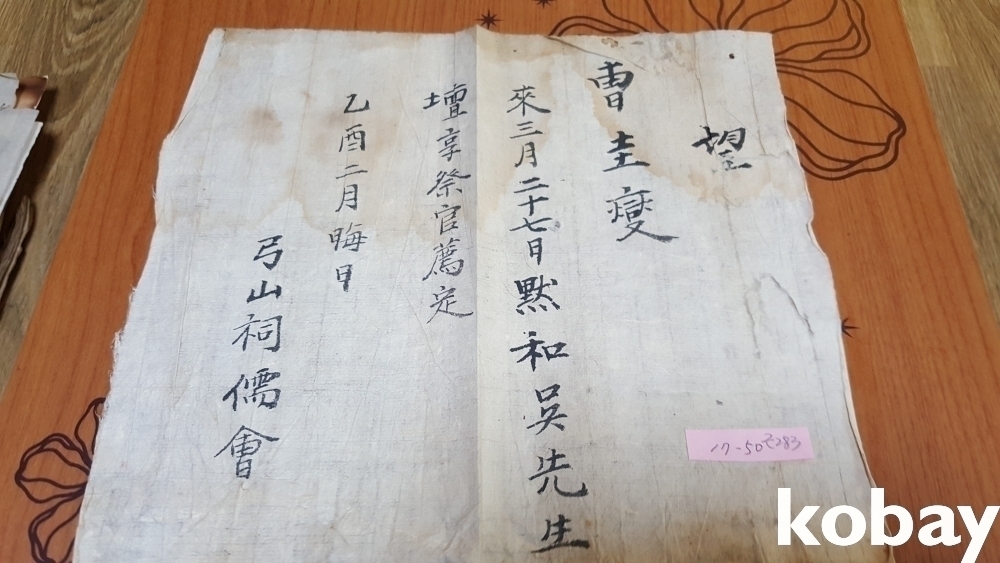 望
曺圭燮
來三月二十七日默和吳先生
壇享祭官薦定
乙酉二月晦日
弓山祠儒會
kobay